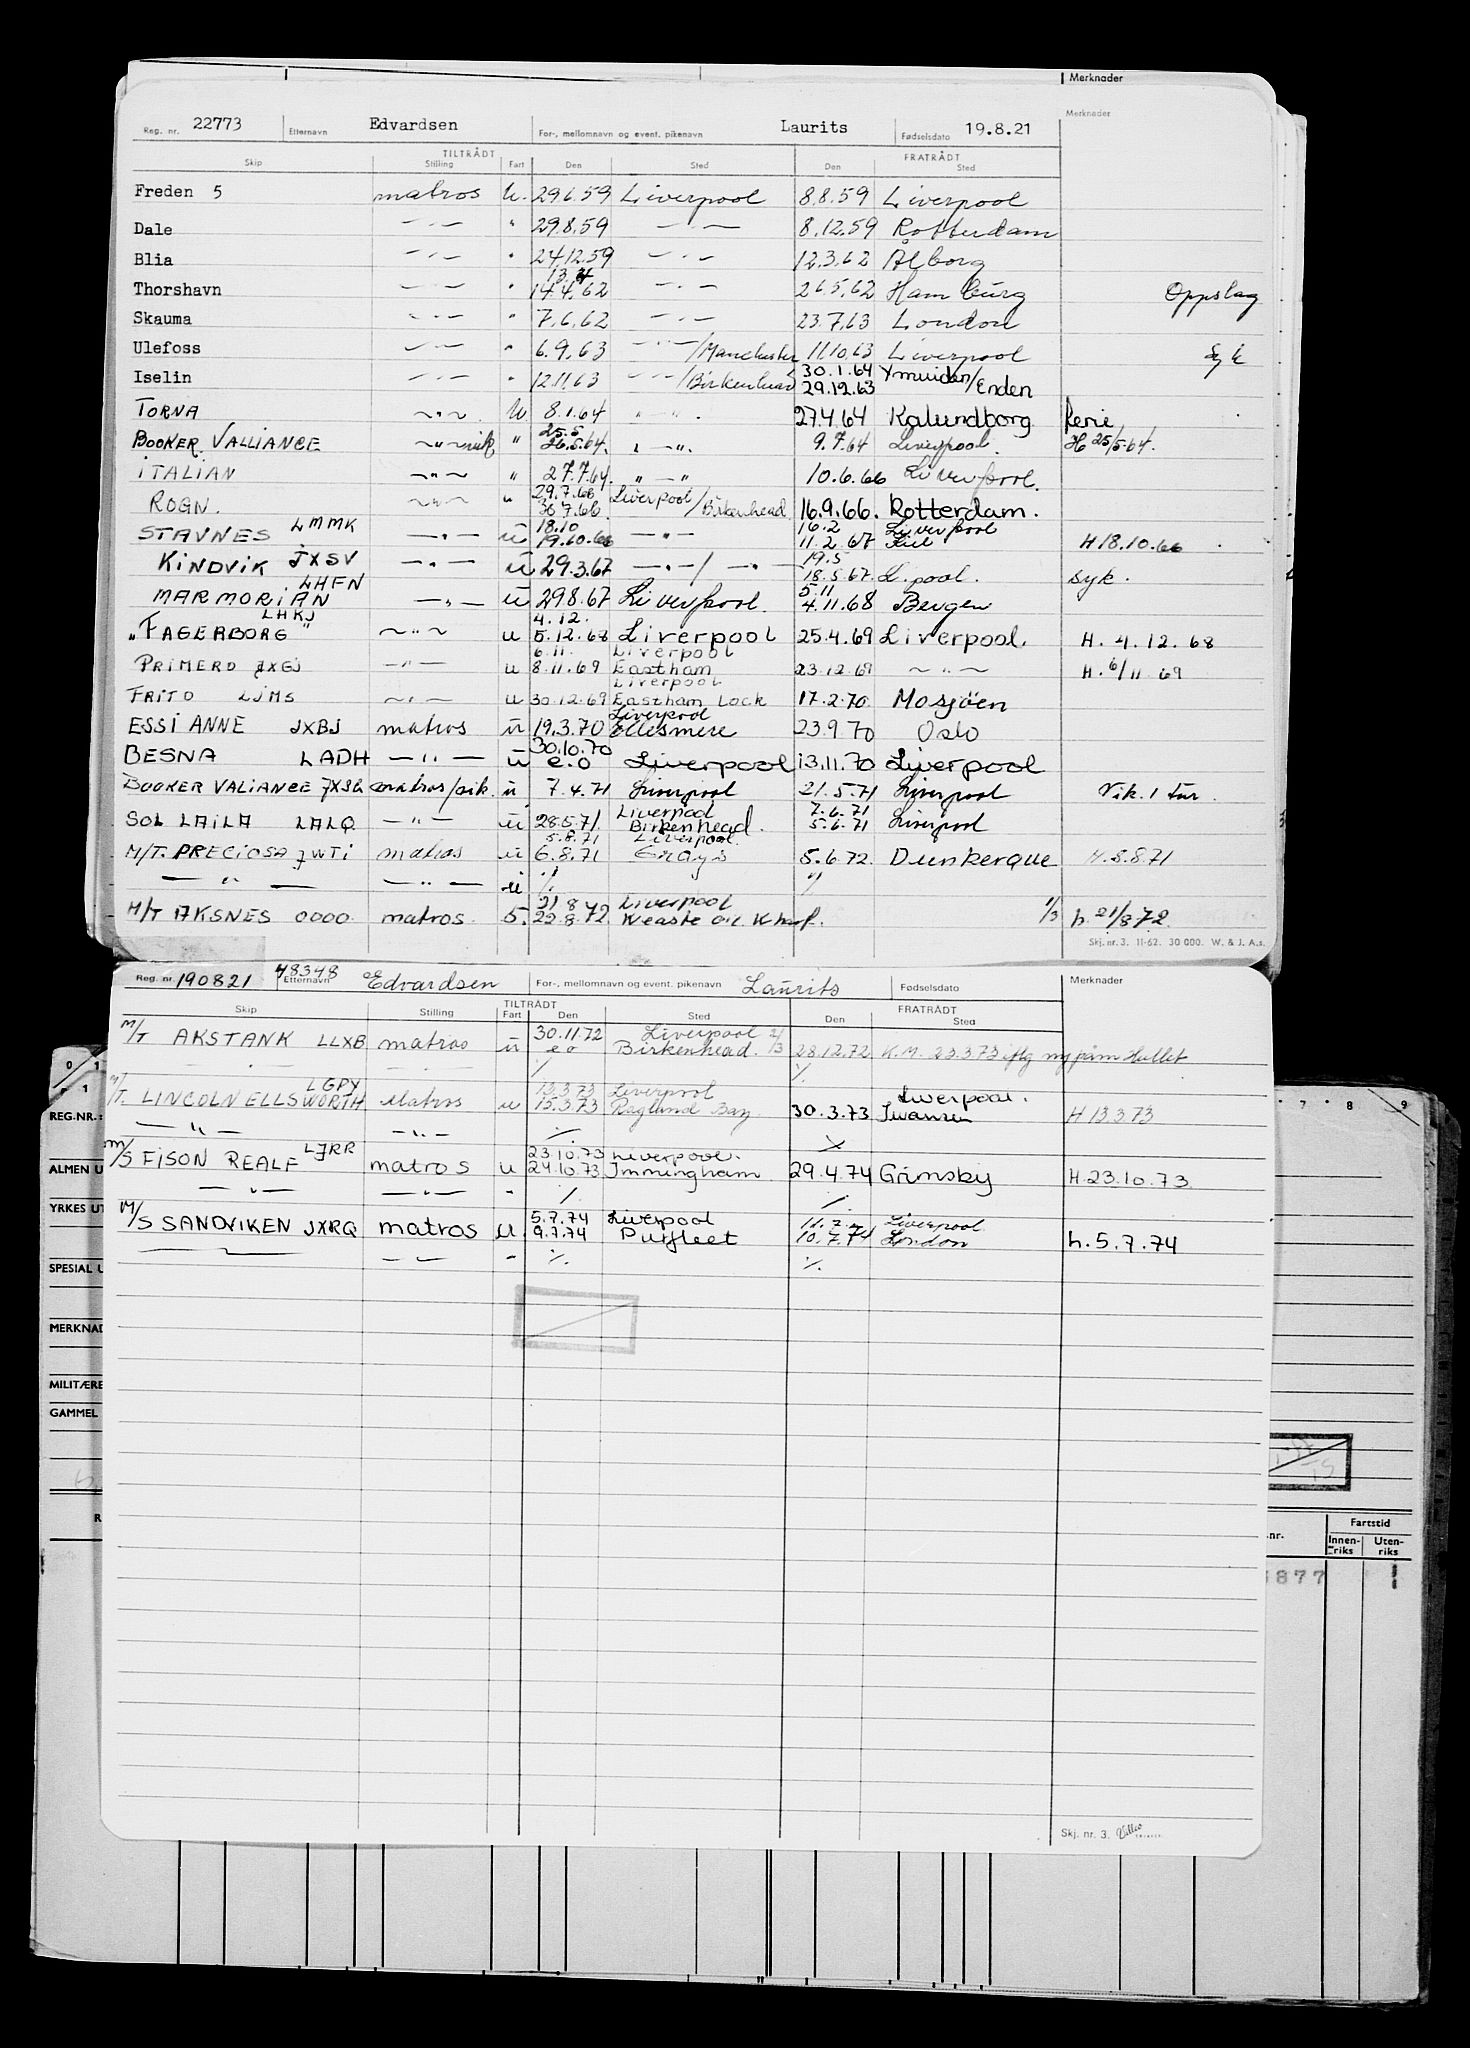 Merknader
Reg. nr. 22773 Etternavn Edvardsen For-, mellomnavn og event. pikenavn Laurits Fødselsdato 19.8.21 Merknader
TILTRÅDT FRATRÅDT
Skip Stilling Fart Den Sted Den Sted
Freden 5 matros u. 29.6.59 Liverpool 8.8.59 Liverpool
Dale — " — " 29.8.59 — " — 8.12.59 Rotterdam
Blia — " — " 24.12.59 — " — 12.3.62 Ålborg
13.4
Thorshavn — " — " 14.4.62 — " — 26.5.62 Hamburg Oppslag
Skauma — " — " 7.6.62 — " — 23.7.63 London
Ulefoss — " — " 6.9.63 — " — /Manchester 11.10.63 Liverpool Syk
30.1.64 Ymuiden/
Iselin — " — " 12.11.63 — " — /Birkenhead 29.12.63 Emden
TORNA — " — u 8.1.64 " — " . 27.4.64 Kalundborg Ferie
25.5
BOOKER VALLIANCE — " — vik " 26.5.64. " — ". 9.7.64 Liverpool. H 25/5-64.
ITALIAN — " — " 27.7.64. " — " 10.6.66 Liverpool.
29.7.66 Liverpool/
ROGN. — " — " 30.7.66 Birkenhead 16.9.66. Rotterdam.
LMMK 18.10 16.2 Liverpool
STAVNES — " — u 19.10.66 — " — 11.2.67 Kiel H 18.10.66
19.5
KINDVIK JXSV — " — u 29.3.67 — " — / — " — 18.5.67. L.pool. syk.
LHFN 5.11
MARMORIAN — " — u 29.8.67 Liverpool. 4.11.68 Bergen
LHKJ 4.12.
"FAGERBORG" — " — u 5.12.68 Liverpool 25.4.69 Liverpool. H. 4.12.68
6.11. Liverpool
PRIMERO JXGJ — " — u 8.11.69 Eastham 23.12.69 — " — H. 6/11 69
Liverpool
FRITO LJMS — " — u 30.12.69 Eastham Lock 17.2.70 Mosjöen
Liverpool
ESSI ANNE JXBJ matros u 19.3.70 Ellesmere 23.9.70 Oslo
30.10.70
BESNA LADH — " — u e.o Liverpool 13.11.70 Liverpool
BOOKER VALIANCE JXSG matros/vik. u 7.4.71 Liverpool 21.5.71 Liverpool Vik. 1 tur.
Liverpool 7.6.71
SOL LAILA LALQ — " — u 28.5.71. Birkenhead. 5.6.71 Liverpool
5.8.71 Liverpool.
M/T. PRECIOSA JWTI matros u 6.8.71 Grays 5.6.72. Dunkerque H.5.8.71
— " — — " — u ./. ./.
21 8 72 Liverpool
M/T AKSNES OOOO matros. 5. 22.8.72 Weaste oil wharf. 1/3 h. 21/8 72.
Skj. nr. 3. 11-62. 30 000. W. & J. A.s.
Reg. nr. 190821 48348 Etternavn Edvardsen For-, mellomnavn og event. pikenavn Laurits Fødselsdato Merknader
TILTRÅDT FRATRÅDT
Skip Stilling Fart Den Sted Den Sted
30.11.72 Liverpool 2/
M/T AKSTANK LLXB matros u e o Birkenhead. /13 28.12.72 K.M. 23.3.73 iflg
./. ./.
LGPY 13.3.73 Liverpool Liverpool.
M/T. LINCOLN ELLSWORTH Matros u 15.3.73 Raglund Bay 30.3.73 Swansea H 13.3.73
— " — — " — ./. ./.
LJRR 23.10.73 Liverpool.
M/S FISON REALF matros u 24.10.73 Immingham 29.4.74 Grimsby H.23.10.73
— " — — " — " ./. ./.
5.7.74 Liverpool 11.7. Liverpool
M/S SANDVIKEN JXRQ matros u. 9.7.74 Purfleet 10.7.74 London h.5.7.74
— " ./. ./.
Skj. nr. 3.
0 1
REG.NR.:
ALMEN U
YRKES UT
SPESIAL U
MERKNAD
MILITÆRE
GAMMEL
R
7 8 9
nr. Fartstid
Innenriks Utenriks
877 1